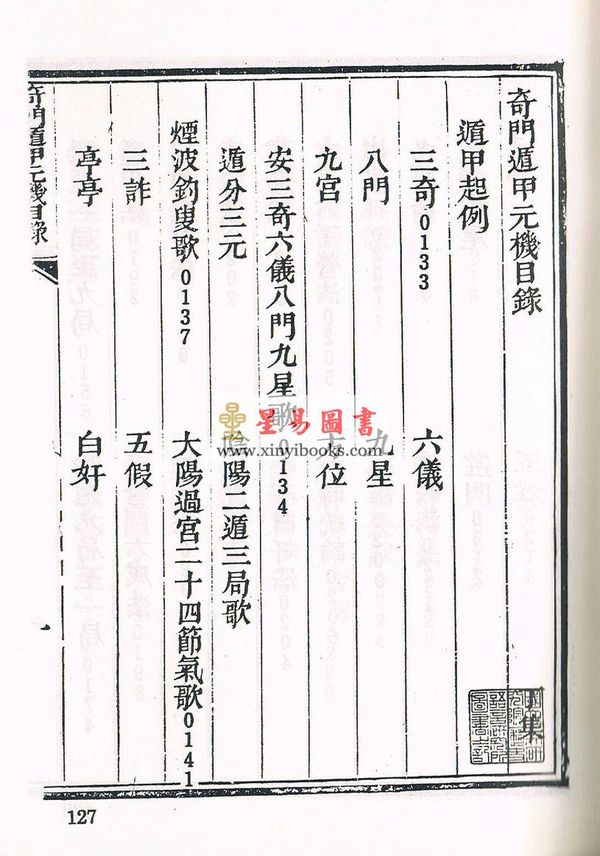 奇門遁甲元機目錄
遁甲起例
三奇0133 六儀
八門 九星
九宮
安三奇六儀八門九星歌0134
遁分三元 陰陽二遁三局歌
煙波釣叟歌0137 大陽過宮二十四節氣歌0141
三詐 五假
亭亭 白奸
奇門遁甲元機目錄
一
集
星易圖書
www.xinyibooks.com
127